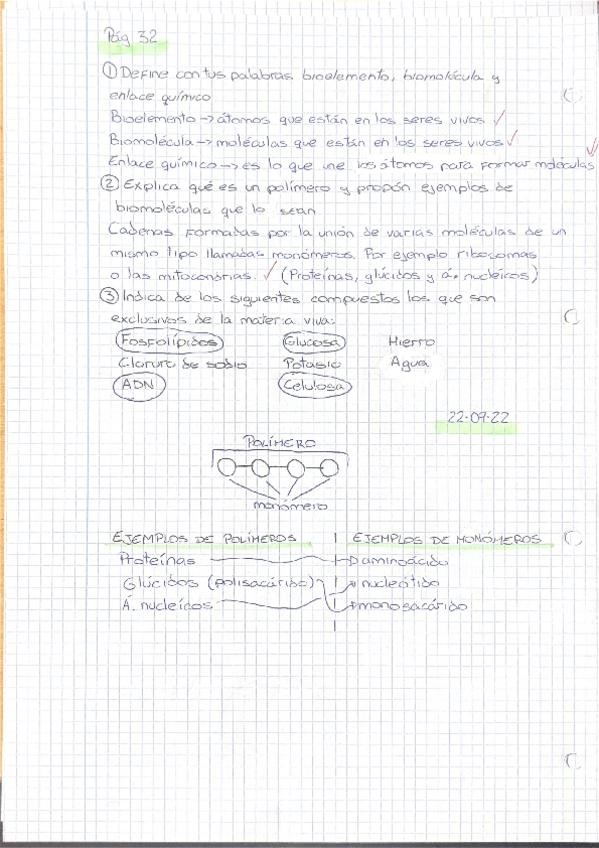 Pág 32
① Define con tus palabras bioelemento, biomolécula y
enlace químico
Bioelemento → átomos que están en los seres vivos ✓
Biomolécula → moléculas que están en los seres vivos ✓
Enlace químico → es lo que une los átomos para formar moléculas
② Explica qué es un polímero y propón ejemplos de
biomoléculas que lo sean
Cadenas formadas por la unión de varias moléculas de un
mismo tipo llamadas monómeros. Por ejemplo ribosomas
o las mitocondrias. ✓ (Proteínas, glúcidos y á. nucleicos)
③ Indica de los siguientes compuestos los que son
exclusivos de la materia viva:
Fosfolípidos Glucosa Hierro
Cloruro de sodio Potasio Agua
ADN Celulosa
22-09-22
POLÍMERO
monómero
EJEMPLOS DE POLÍMEROS EJEMPLOS DE MONÓMEROS
Proteínas aminoácido
Glúcidos (polisacárido) nucleótido
Á. nucleicos monosacárido